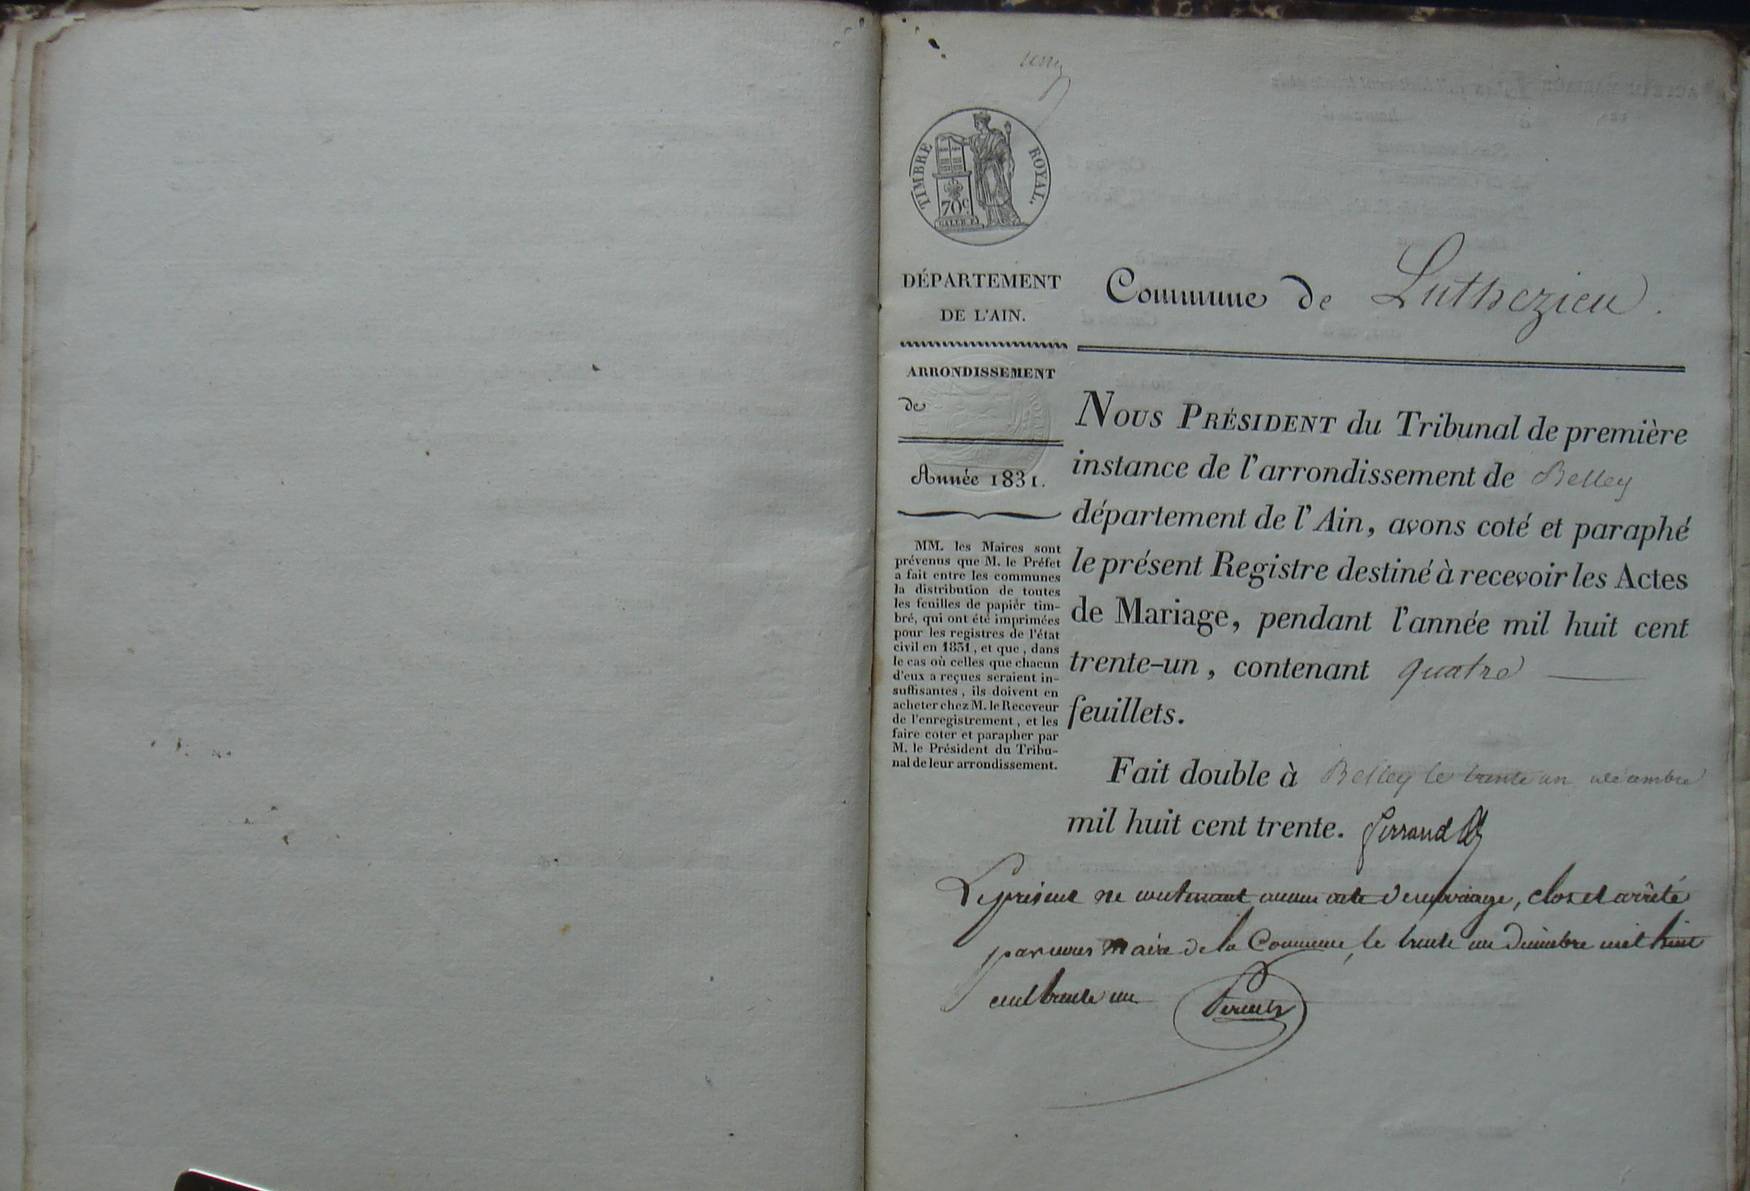 TIMBRE ROYAL.
70c
DÉPARTEMENT
DE L'AIN.
ARRONDISSEMENT
de
Année 1831.
MM. les Maires sont
prévenus que M. le Préfet
a fait entre les communes
la distribution de toutes
les feuilles de papier tim-
bré, qui ont été imprimées
pour les registres de l'état
civil en 1831, et que, dans
le cas où celles que chacun
d'eux a reçues seraient in-
suffisantes, ils doivent en
acheter chez M. le Receveur
de l'enregistrement, et les
faire coter et parapher par
M. le Président du Tribu-
nal de leur arrondissement.
Commune de Luthezieu.
NOUS PRÉSIDENT du Tribunal de première
instance de l'arrondissement de Belley
département de l'Ain, avons coté et paraphé
le présent Registre destiné à recevoir les Actes
de Mariage, pendant l'année mil huit cent
trente-un, contenant quatre
feuillets.
Fait double à Belley le trente un décembre
mil huit cent trente. Ferrand
Le présent ne contenant aucun acte de mariage, clos et arrêté
par nous Maire de la Commune, le trente un Décembre mil huit
cent trente un